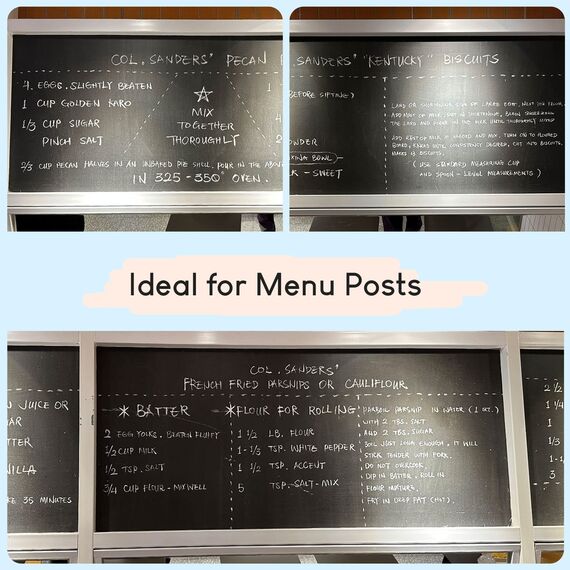 COL. SANDERS' PECAN P
4 EGGS, SLIGHTLY BEATEN
1 CUP GOLDEN KARO
1/3 CUP SUGAR
PINCH SALT
MIX
TOGETHER
THOROUGHLY
1
4
2/3 CUP PECAN HALVES IN AN UNBAKED PIE SHELL, POUR IN THE ABOV
IN 325-350° OVEN.
. SANDERS' "KENTUCKY" BISCUITS
BEFORE SIFTING)
OWDER
XING BOWL)
K - SWEET
LARD OR SHORTENING, SIZE OF LARGE EGG, NEXT MIX FLOUR,
ADD MOST OF MILK,
THE LARD AND FLOUR IN THE MILK UNTIL THOROUGHLY MIXED
ADD REST OF MILK IF NEEDED AND MIX, TURN ON TO FLOURED
BOARD, KNEAD UNTIL CONSISTENCY DESIRED, CUT INTO BISCUITS.
MAKES 18 BISCUITS.
( USE STANDARD MEASURING CUP
AND SPOON - LEVEL MEASUREMENTS )
Ideal for Menu Posts
N JUICE OR
AR
TTER
NILLA
KE 35 MINUTES
COL. SANDERS'
FRENCH FRIED PARSNIPS OR CAULIFLOUR
* BATTER
2 EGG YOLKS, BEATEN FLUFFY
1/2 CUP MILK
1/2 TSP. SALT
3/4 CUP FLOUR - MIX WELL
* FLOUR FOR ROLLING
1 1/2 LB. FLOUR
1-1/3 TSP. WHITE PEPPER
1 1/2 TSP. ACCENT
5 TSP. SALT - MIX
PARBOIL PARSNIP IN WATER (1 QT.)
WITH 2 TBS. SALT
AND 2 TBS. SUGAR
BOIL JUST LONG ENOUGH, IT WILL
STICK TENDER WITH FORK.
DO NOT OVERCOOK.
DIP IN BATTER, ROLL IN
FLOUR MIXTURE,
FRY IN DEEP FAT (HOT).
2 1/2
1 1/4
1
1
3